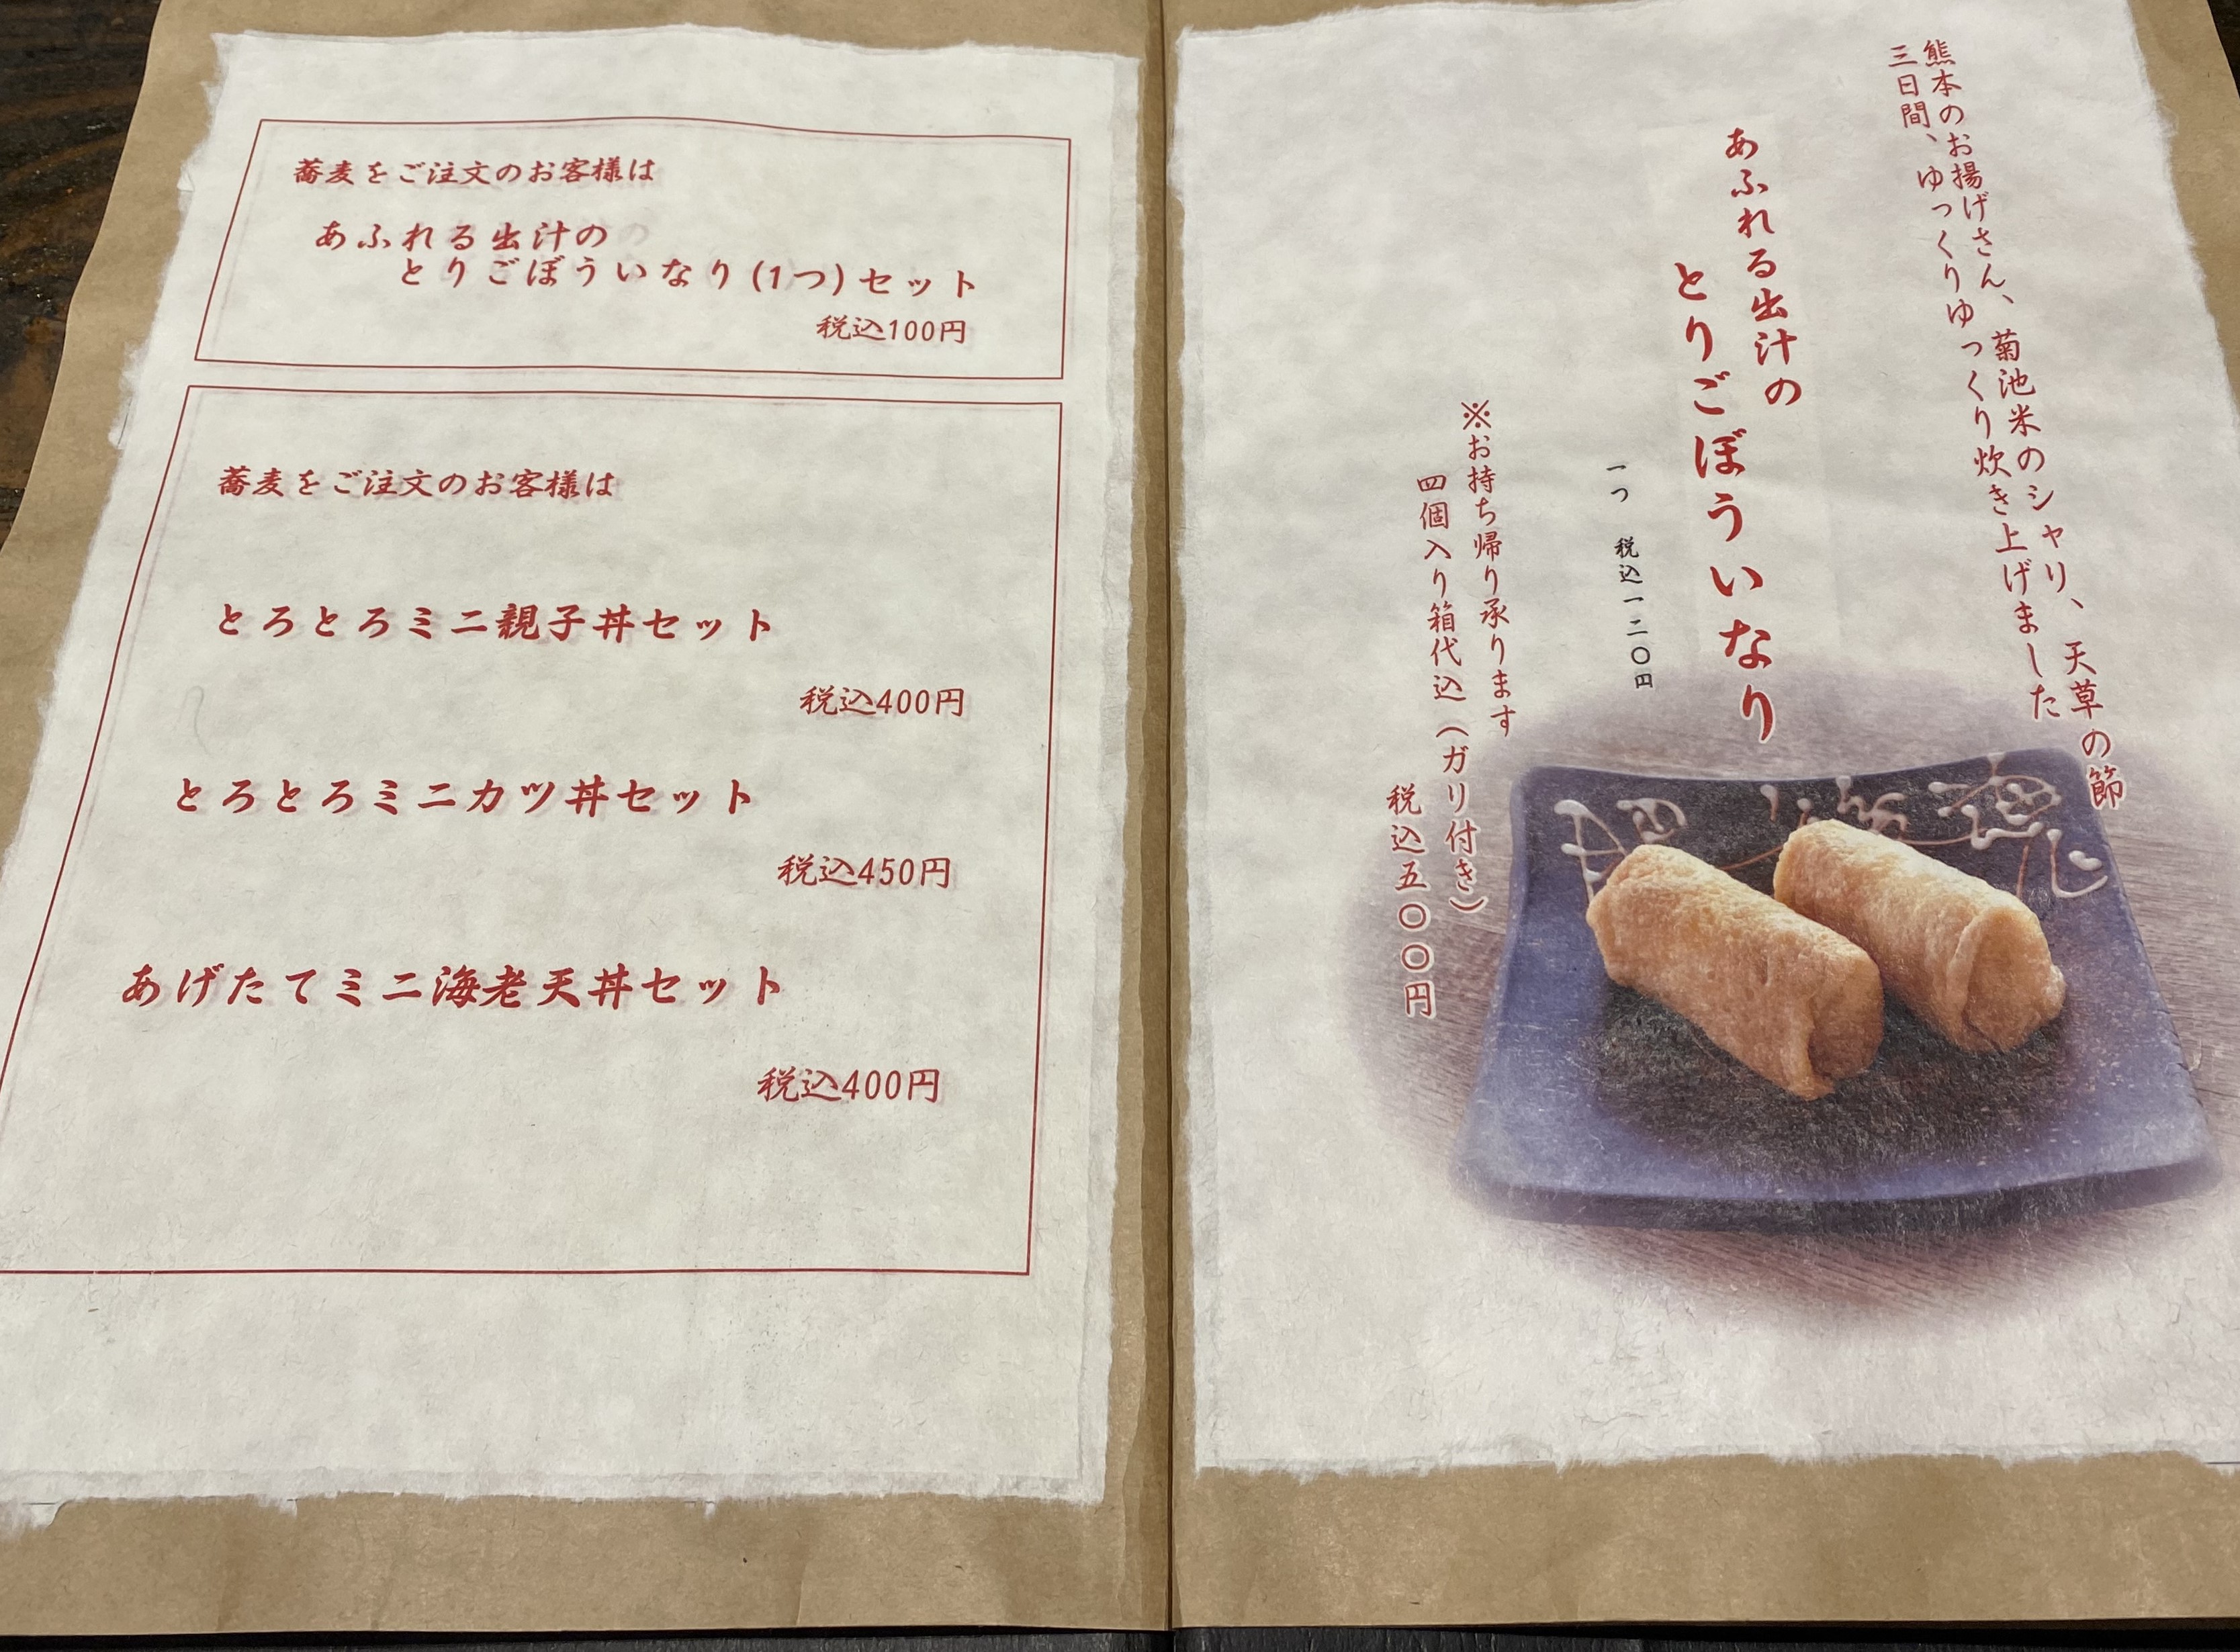 蕎麦をご注文のお客様は
あふれる出汁の
とりごぼういなり(1つ)セット
税込100円
蕎麦をご注文のお客様は
とろとろミニ親子丼セット
税込400円
とろとろミニカツ丼セット
税込450円
あげたてミニ海老天丼セット
税込400円
熊本のお揚げさん、菊池米のシャリ、天草の節
三日間、ゆっくりゆっくり炊き上げました
あふれる出汁の
とりごぼういなり
一つ 税込一二〇円
※お持ち帰り承ります
四個入り箱代込(ガリ付き)
税込五〇〇円